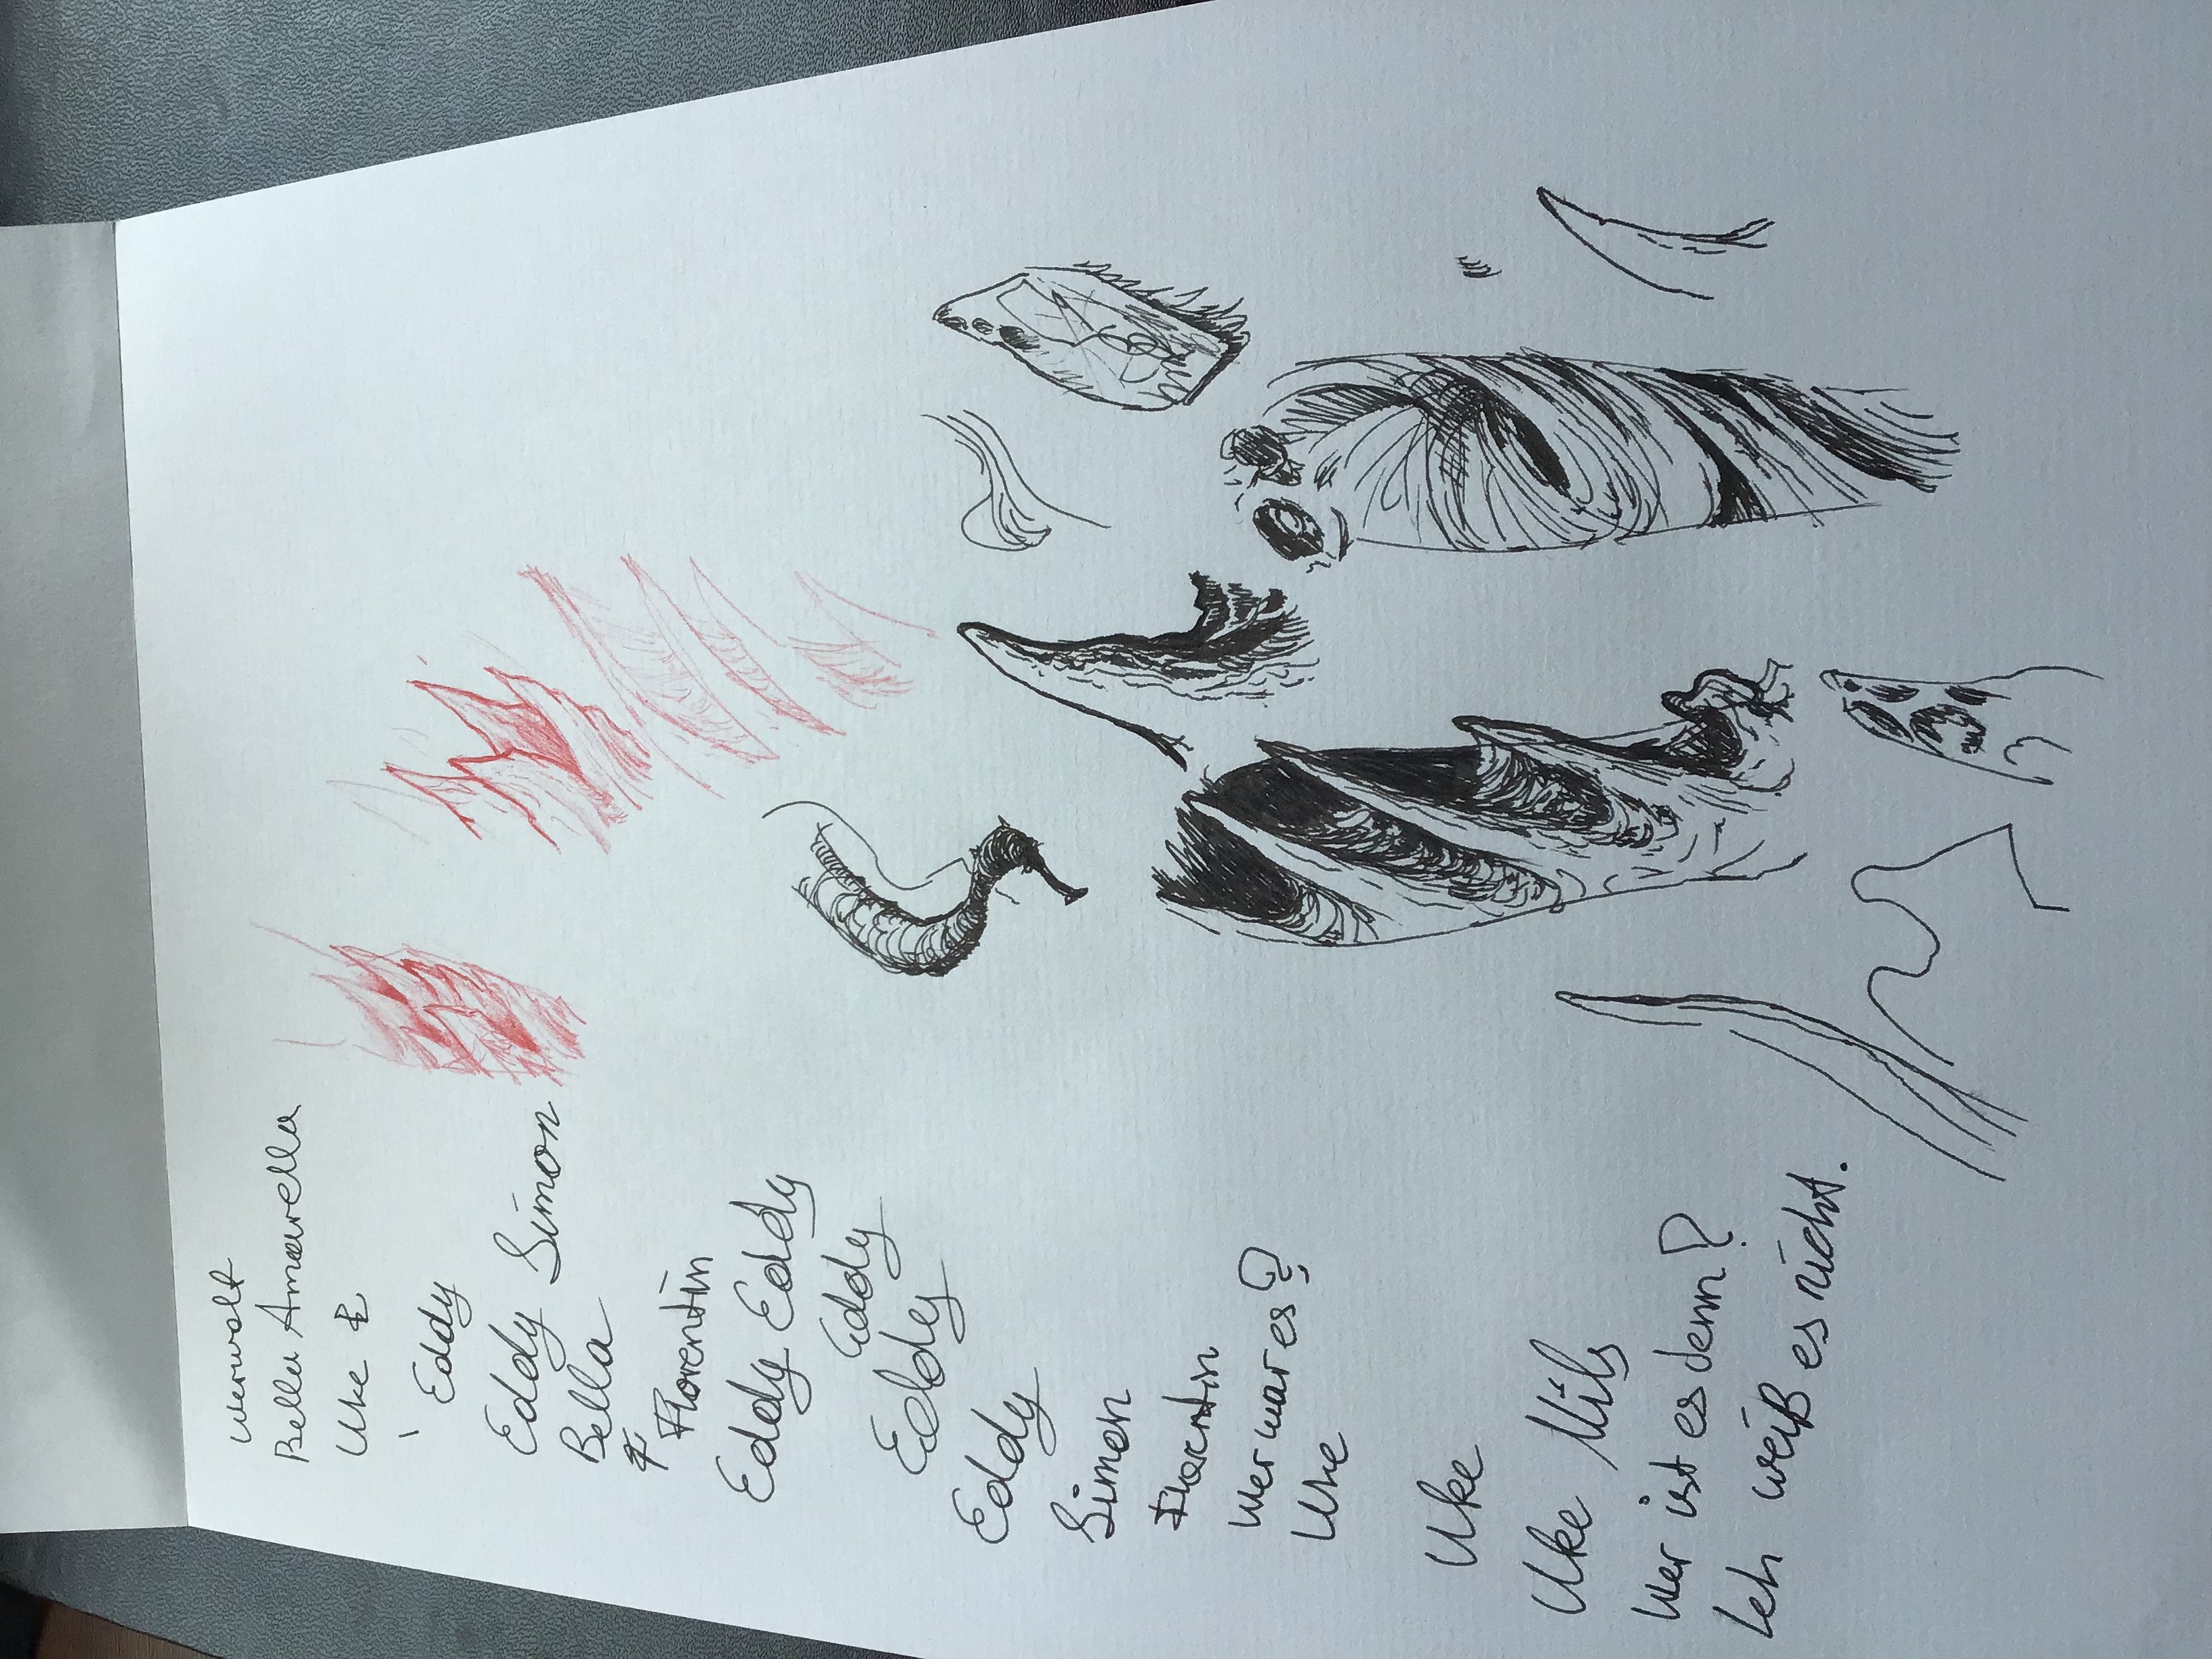 Bella Amarella
Uke &
Eddy
Eddy Simon
Bella
&
Florentin
Eddy Eddy
Eddy
Eddy
Eddy
Simon
Florentin
Wer war es?
Uke
Uke
Uke Nils
Wer ist es denn?
Ich weiß es nicht.